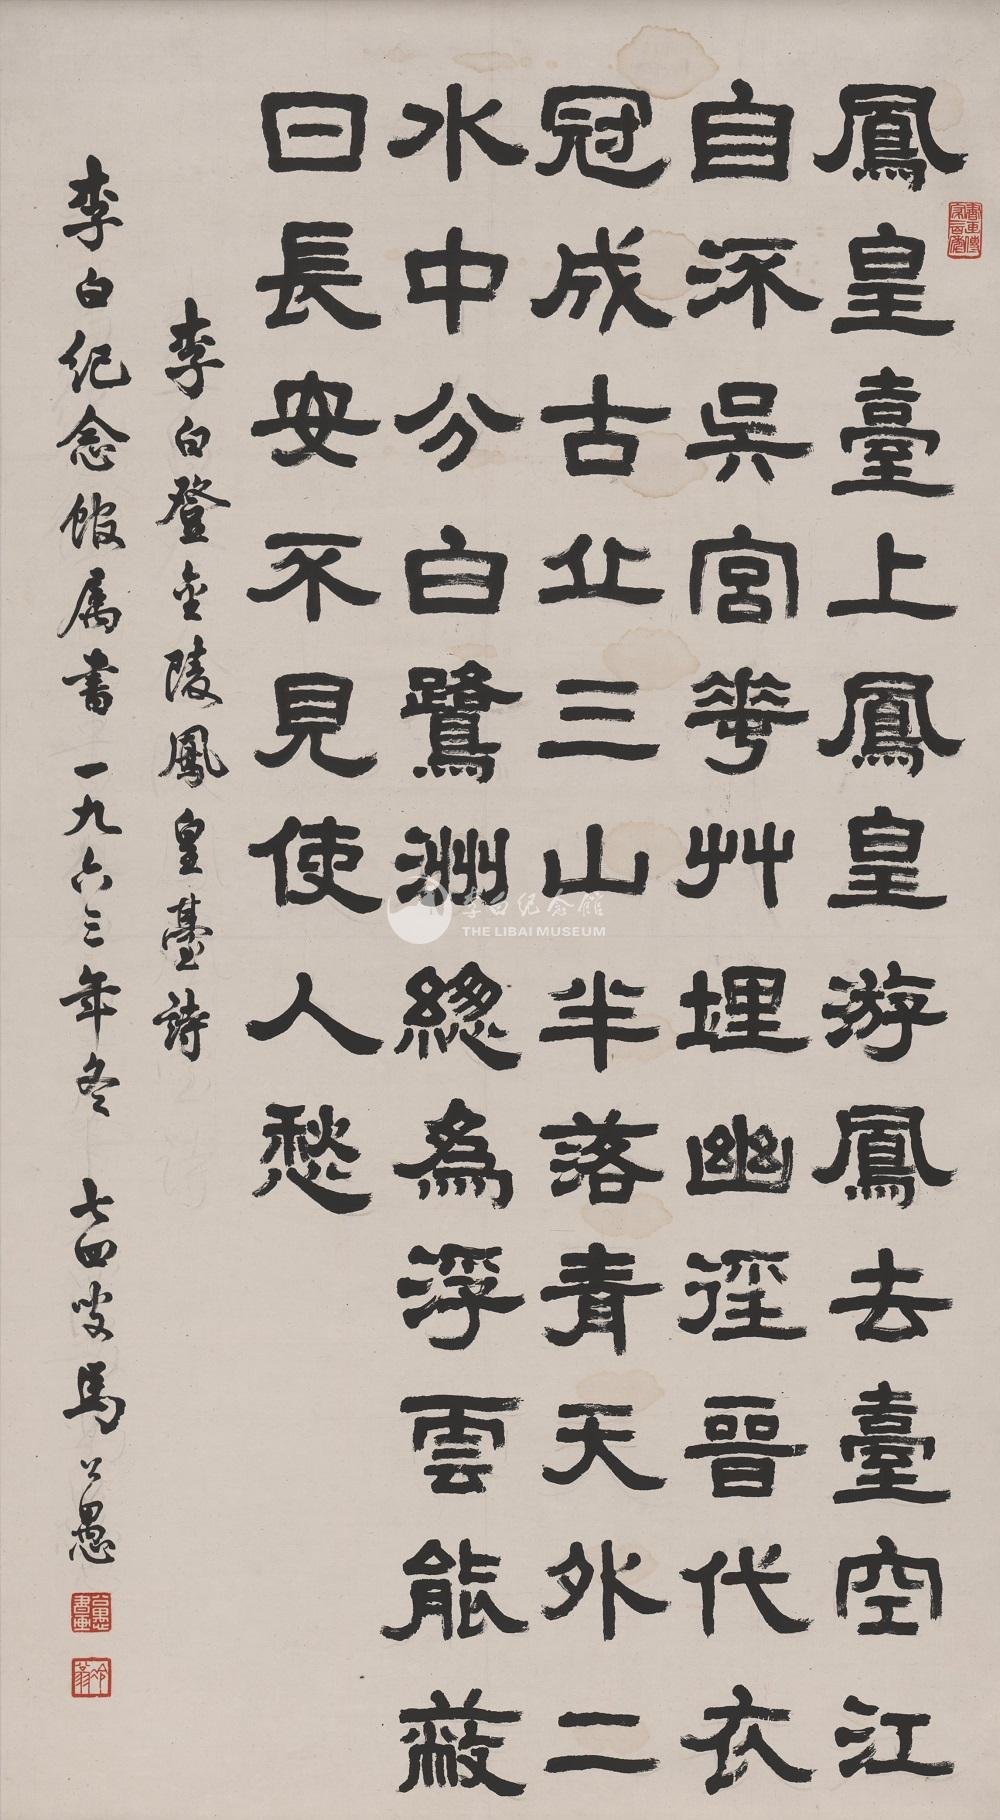 鳳皇臺上鳳皇游鳳去臺空江
自流吳宮華艸埋幽徑晉代衣
冠成古丘三山半落青天外二
水中分白鷺洲總為浮雲能蔽
日長安不見使人愁
李白登金陵鳳皇臺詩
李白紀念館属書一九六三年冬 七四叟馬公愚
公愚書畫
冷翁
李白纪念館
THE LIBAI MUSEUM